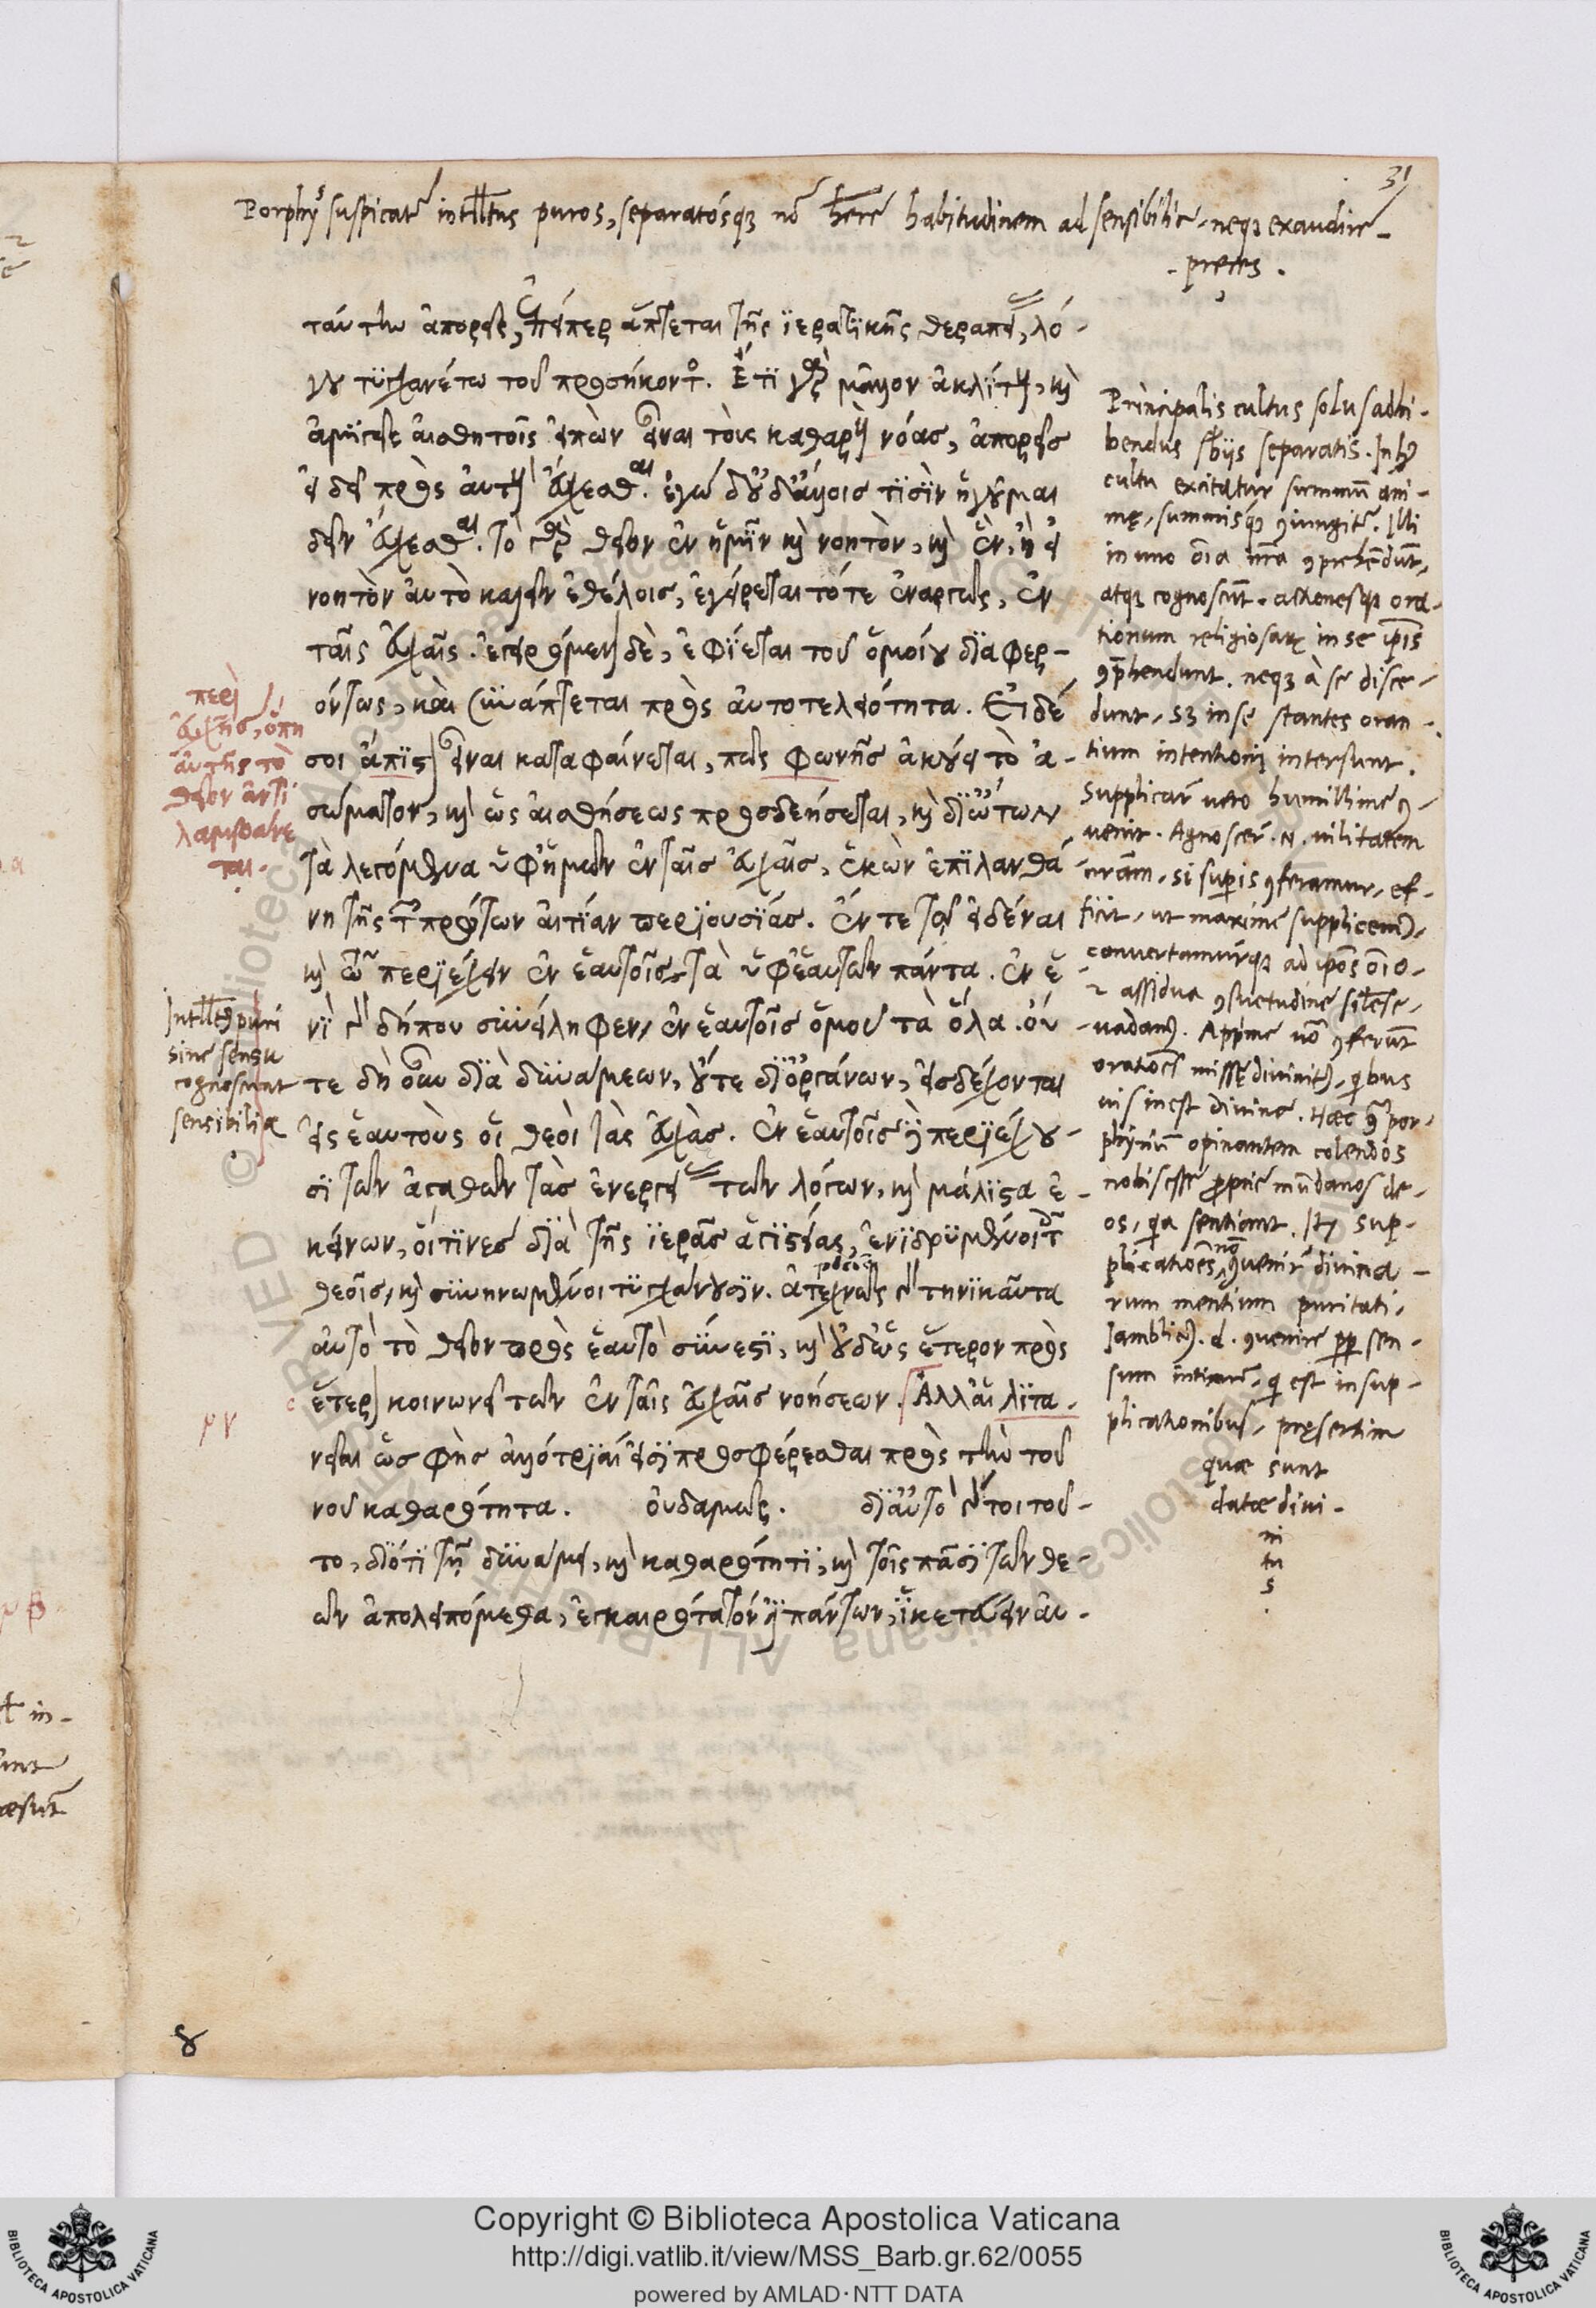 31
Porphyꝰ suspicatur intllꝰtus puros, separatósqꝫ nō hērē habitudinem ad sensibilia, neqꝫ exaudire
preces.
ταύτην ἀπορεῖς, ἐπείπερ ἅπτεται τῆς ἱερατικῆς θεραπείας, λό-
γου τυγχανέτω τοῦ προσήκοντος. Ἔτι γὰρ μᾶλλον ἀκλίτους, καὶ
ἀμιγεῖς αἰσθητοῖς εἰπὼν εἶναι τοὺς καθαροὺς νόας, ἀπορεῖς
εἰ δεῖ πρὸς αὐτοὺς εὔχεσθαι. ἐγὼ δ' οὐδ' ἄλλοις τισὶν ἡγοῦμαι
δεῖν εὔχεσθαι. τὸ γὰρ θεῖον ἐν ἡμῖν καὶ νοητὸν, καὶ ἓν, ἢ εἰ
νοητὸν αὐτὸ καλεῖν ἐθέλοις, ἐγείρεται τότε ἐναργῶς, ἐν
ταῖς εὐχαῖς. ἐγειρόμενον δὲ, ἐφίεται τοῦ ὁμοίου διαφερ-
όντως, καὶ συνάπτεται πρὸς αὐτοτελειότητα. Εἰ δέ
σοι ἄπιστον εἶναι καταφαίνεται, πῶς φωνῆς ἀκούει τὸ ἀ-
σώματον, καὶ ὡς αἰσθήσεως προσδεήσεται, καὶ δι' ὤτων
τὰ λεγόμενα ὑφ' ἡμῶν ἐν ταῖς εὐχαῖς, ἑκὼν ἐπιλανθά-
νῃ τῆς τῶν πρώτων αἰτίων περιουσίας. ἔν τε τῷ εἰδέναι
καὶ τῷ περιέχειν ἐν ἑαυτοῖς τὰ ὑφ' ἑαυτῶν πάντα. ἐν ἑ-
νὶ γὰρ δήπου συνείληφεν ἐν ἑαυτοῖς ὁμοῦ τὰ ὅλα. οὔ
τε δὴ οὖν διὰ δυνάμεων, οὔτε δι' ὀργάνων, εἰσδέχονται
εἰς ἑαυτοὺς οἱ θεοὶ τὰς εὐχὰς. ἐν ἑαυτοῖς δὲ περιέχου-
σι τῶν ἀγαθῶν τὰς ἐνεργείας τῶν λόγων, καὶ μάλιστα ἐ-
κείνων, οἵτινες διὰ τῆς ἱερᾶς ἁγιστείας, ἐνιδρυμένοι τοῖς
θεοῖς, καὶ συνηνωμένοι τυγχάνουσιν. ἀτεχνῶς γὰρ τηνικαῦτα
αὐτὸ τὸ θεῖον πρὸς ἑαυτὸ σύνεστι, καὶ οὐδ' ὡς ἕτερον πρὸς
ἕτερον κοινωνεῖ τῶν ἐν ταῖς εὐχαῖς νοήσεων. Ἀλλ' αἱ λιτα-
νεῖαι ὡς φῂς ἀλλότριαί εἰσι προσφέρεσθαι πρὸς τὴν τοῦ
νοῦ καθαρότητα. οὐδαμῶς. δι' αὐτὸ γάρ τοι τοῦ-
το, διότι τῇ δυνάμει, καὶ καθαρότητι, καὶ τοῖς πᾶσι τῶν θε-
ῶν ἀπολειπόμεθα, ἐγκαιρότατόν ἐστι πάντων, ἱκετεύειν αὐ-
περὶ
εὐχῆς, ὅπῃ
αὐτῆς τὸ
θεῖον ἀντι
λαμβάνε
ται.
Intllꝰꝰ puri
sine sensu
cognoscunt
sensibilia
Principalis cultus solus adhi-
bendus sbiis separatis. In hoc
cultu excitatur summum ani-
mę, summisqꝫ coniungitur. Illi
in uno oīa nrā comprehēdunt,
atqꝫ cognoscunt. actionesqꝫ ora-
tionum religiosarum in se ipsis
comprehendunt. neqꝫ à se disce-
dunt, sꝫ in se stantes oran-
tium intentioni intersunt.
Supplicare uero humillime con-
uenit. Agnoscere .n. uilitatem
nram, si superis conferamur, ef-
ficit, ut maxime supplicemus,
conuertamurqꝫ ad ipsos oīo.
assidua consuetudine
uadamus.
orationes missę diuinitus, quibus
uis inest diuina. Haec contra por-
phyrium opinantem colendos
nobis esse proprie mundanos de-
os, quia sentiant. Item sup-
plicationes non conuenire diuina-
rum mentium puritati.
Iamblicus .d. conuenire propter sen-
sum intimum, qui est in sup-
plicationibus, pręsertim
quae sunt
datae diui-
ni
tu
s
.
μν
8
Copyright © Biblioteca Apostolica Vaticana
http://digi.vatlib.it/view/MSS_Barb.gr.62/0055
powered by AMLAD · NTT DATA
BIBLIOTECA APOSTOLICA VATICANA
BIBLIOTECA APOSTOLICA VATICANA